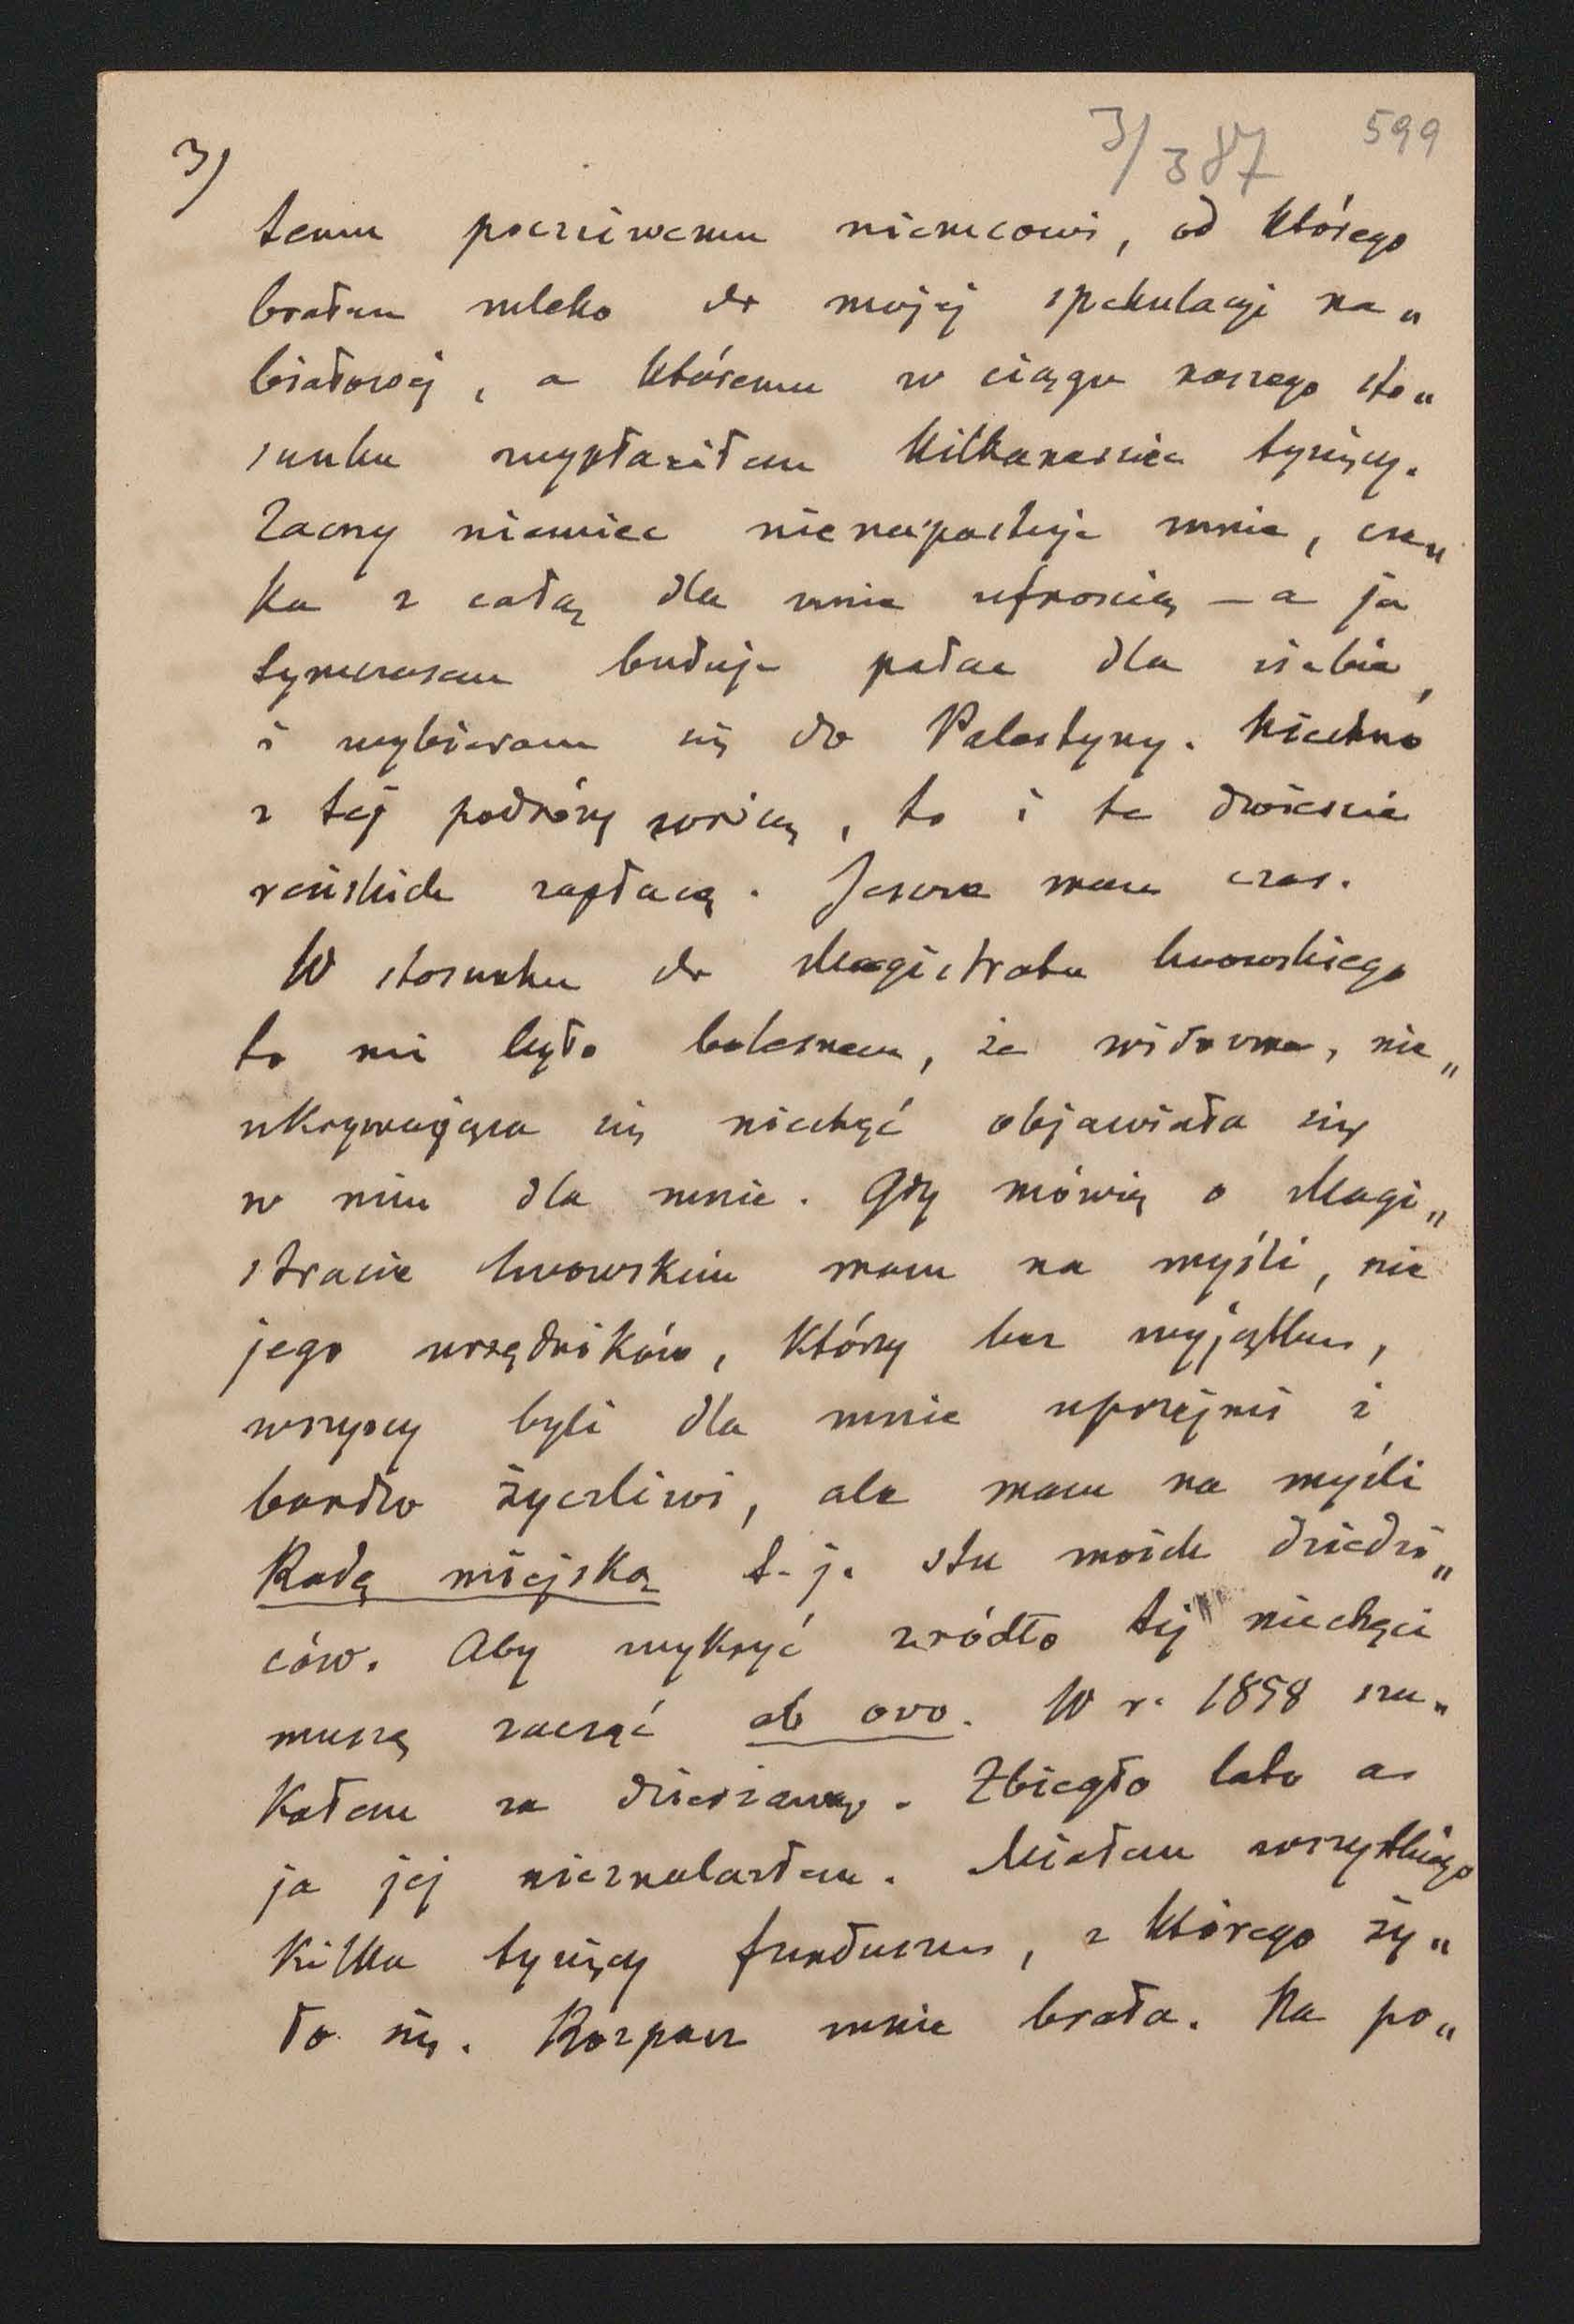 3/
3/387
599
temu poczciwemu niemcowi, od którego
brałem mleko do mojej spekulacyi na„
białowej, a któremu w ciągu naszego sto„
sunku wypłaciłem kilkanaście tysięcy.
Zacny niemiec nie napastuje mnie, cze„
ka z całą dla mnie ufnością – a ja
tymczasem buduję pałac dla siebie,
i wybieram się do Palestyny. Niechno
z tej podróży wrócę, to i te dwieście
reńskich zapłacę. Jeszcze mam czas.
W stosunku do Magistratu lwowskiego
to mi było bolesnem, że widoczna, nie„
ukrywająca się niechęć objawiała się
w nim dla mnie. Gdy mówię o Magi„
stracie lwowskim mam na myśli, nie
jego urzędników, którzy bez wyjątku,
wszyscy byli dla mnie uprzejmi i
bardzo życzliwi, ale mam na myśli
Radę miejską t.j. stu moich dziedzi„
ców. Aby wykryć źródło tej niechęci
muszę zacząć ab ovo. W r. 1858 szu„
kałem za dzierżawą. Zbiegło lato a
ja jej nieznalazłem. Miałem wszystkiego
kilka tysięcy funduszu, z którego ży„
ło się. Rozpacz mnie brała. Na po„